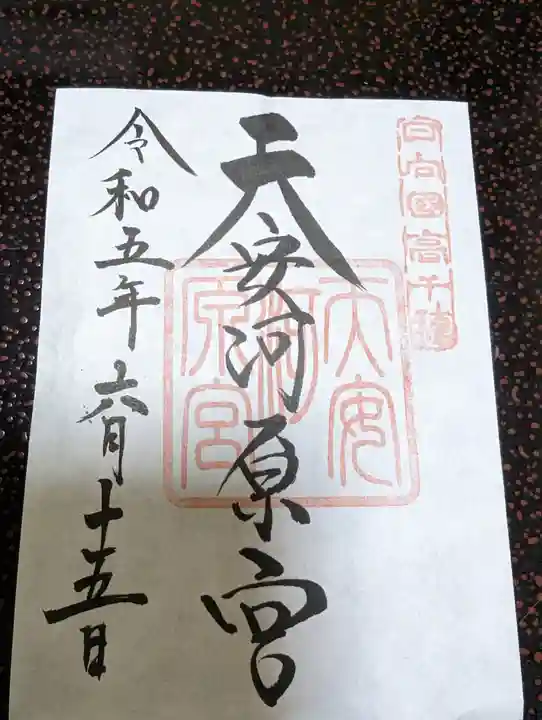 日向國高千穂
天安河原宮
天安
河
原宮
令和五年六月十五日